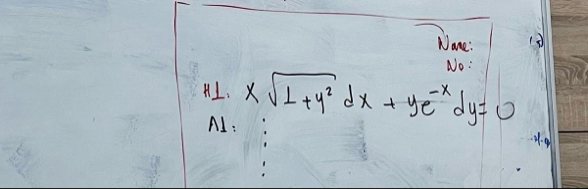 Name:
No:
H1. x √1+y² dx + ye⁻ˣ dy = 0
A1: